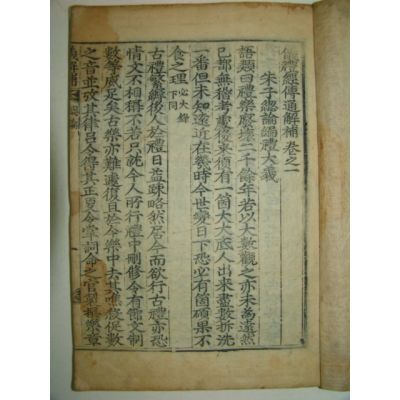 儀禮經傳通解補卷之一
朱子總論編禮大義
語類曰禮樂廢壞二千餘年若以大數觀之亦未爲遠然
已都無稽考處後來須有一箇大大底人出來盡數拆洗
一番但未知遠近在幾時今世變日下恐必有箇碩果不
食之理必大錄下同
古禮繁縟後人於禮日益疎略然居今而欲行古禮亦恐
情文不相稱不若只就今人所行禮中刪修令有節文制
數等威足矣古樂亦難遽復且於今樂中去其噍殺促數
之音並攷其律呂令得其正更令掌詞命之官製撰樂章